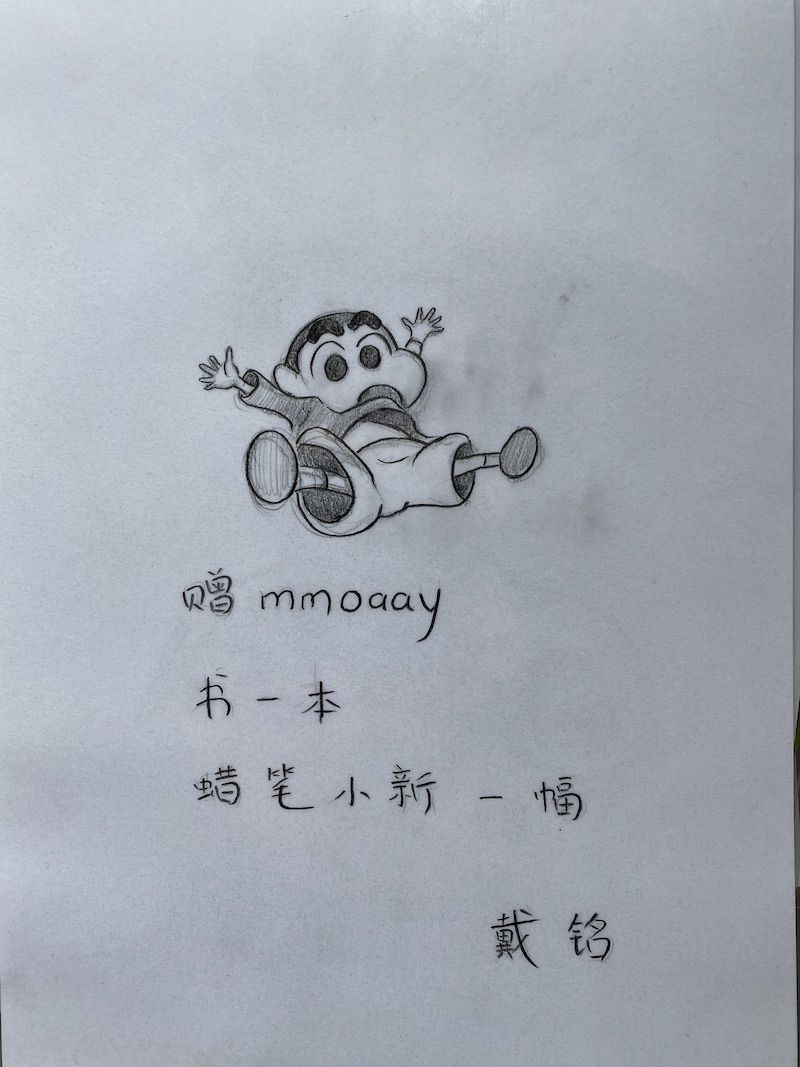 赠 mmoaay
书一本
蜡笔小新一幅
戴铭